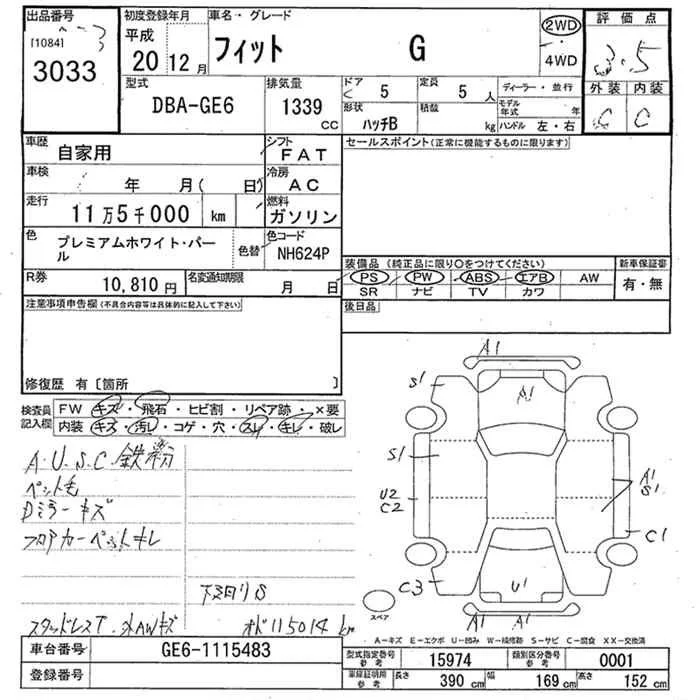 出品番号 初度登録年月 車名・グレード 2WD 評価点
[1084] 平成 フィット G 4WD 3.5
3033 20 12月
外装 内装
型式 排気量 ドア 5 定員 5人 ディーラー・並行
DBA-GE6 1339 cc 形状 ハッチB 積載 kg モデル年式 年 C C
ハンドル 左・右
車歴 自家用 シフト FAT セールスポイント(正常に機能するものに限ります)
車検 年 月( 日) 冷房 AC
走行 11万5千000 km 燃料 ガソリン
色 プレミアムホワイト・パール 色替 色コード NH624P
装備品 (純正品に限り○をつけてください) 新車保証書
R券 10,810円 名変通知期限 月 日 PS PW ABS エアB AW 有・無
SR ナビ TV カワ
注意事項申告欄(不具合内容等は具体的に記入して下さい) 後日品
修復歴 有〔箇所 〕
検査員記入欄 FW キズ・飛石・ヒビ割・リペア跡・×要
内装 キズ・汚レ・コゲ・穴・スレ・キレ・破レ
A.U.S.C.鉄粉
ペット毛
Dミラーキズ
フロアカーペットキレ
下廻りS
スタッドレスT.外AWキズ オド115014km
A1
S1 A1
S1
U2 A1
C2 S1
C1
C3 U1
A1 A1
スペア
A-キズ E-エクボ U-凹み W-補修跡 S-サビ C-腐食 XX-交換済
車台番号 GE6-1115483 型式指定番号 参考 15974 類別区分番号 参考 0001
登録番号 車庫証明用 参考 長さ 390cm 幅 169cm 高さ 152cm